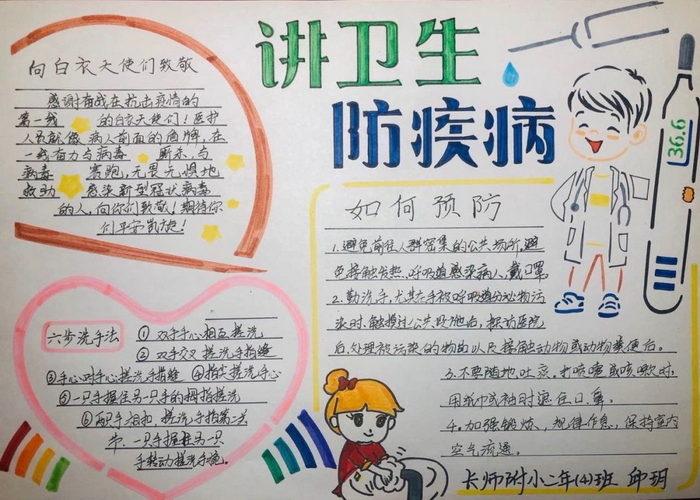 讲卫生
防疾病
向白衣天使们致敬
感谢奋战在抗击疫情的
第一线 的白衣天使们！医护
人员就像 病人前面的盾牌，在
一线奋力与病毒 厮杀，与
病毒 赛跑，无畏无惧地
救助 感染新型冠状病毒
的人，向你们致敬！期待你
们平安凯旋！
36.6
如何预防
1.避免前往人群密集的公共场所,避
免接触发热、呼吸道感染病人，戴口罩
2.勤洗手，尤其在手被呼吸道分泌物污
染时、触摸过公共设施后、探访医院
后、处理被污染的物品以及接触动物或动物粪便后。
3.不要随地吐痰，打喷嚏或咳嗽时，
用纸巾或袖肘遮住口鼻。
4.加强锻炼，规律作息，保持室内
空气流通。
六步洗手法
①双手手心相互搓洗
②双手交叉搓洗手指缝
③手心对手心搓洗手指缝 ④指尖搓洗手心
⑤一只手握住另一只手的拇指搓洗
⑥两手相扣 搓洗手指第二关
节，一只手握住另一只
手转动搓洗手腕。
长师附小二年(4)班 邱玥